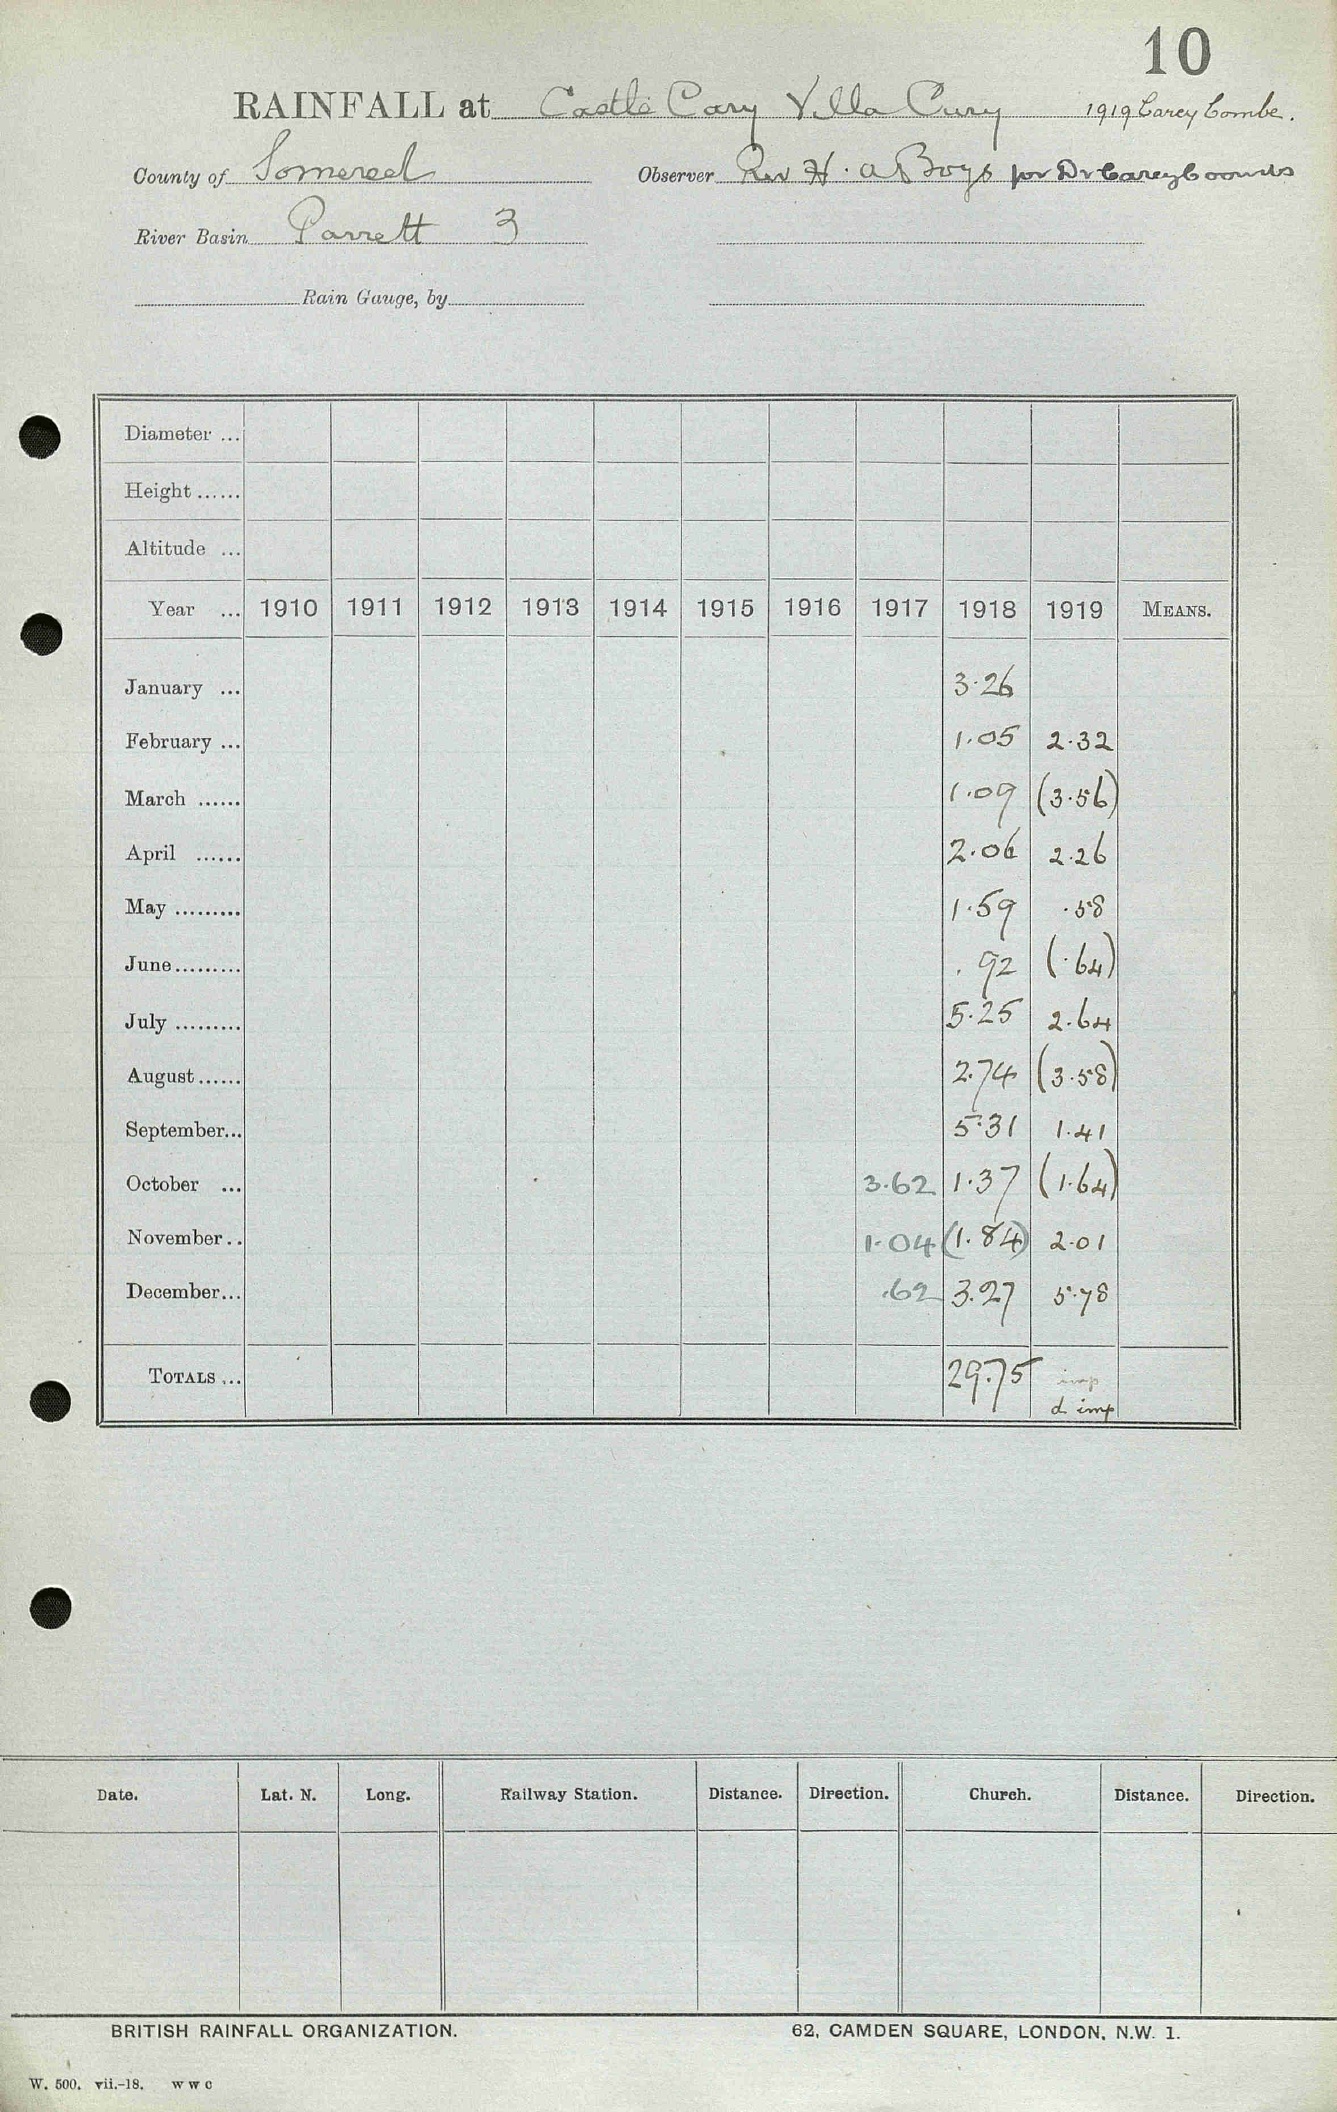 10
RAINFALL at Castle Cary Villa Cury 1919 Carey Combe.
County of Somerset Observer Rev H. A Boys for Dr Carey Coombs
River Basin Parrett 3
Rain Gauge, by
Diameter ...
Height ......
Altitude ...
Year ... 1910 1911 1912 1913 1914 1915 1916 1917 1918 1919 MEANS.
January ... 3.26
February ... 1.05 2.32
March ...... 1.09 (3.56)
April ...... 2.06 2.26
May ......... 1.59 .58
June......... .92 (.64)
July ......... 5.25 2.64
August...... 2.74 (3.58)
September... 5.31 1.41
October ... 3.62 1.37 (1.64)
November.. 1.04 (1.84) 2.01
December... .62 3.27 5.78
TOTALS ... 29.75 imp
d imp
Date. Lat. N. Long. Railway Station. Distance. Direction. Church. Distance. Direction.
BRITISH RAINFALL ORGANIZATION. 62, CAMDEN SQUARE, LONDON, N.W. 1.
W. 500. vii.-18. w w c